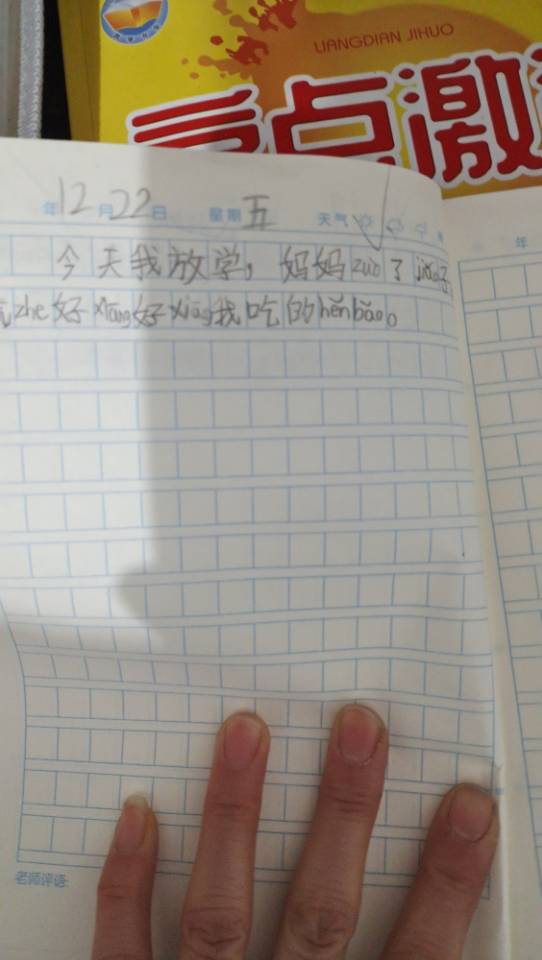 LIANGDIAN JIHUO
亮点激
年12月22日 星期五 天气
年
今天我放学，妈妈zuò了jiǎo子，
zhe好xiāng好xiāng我吃的hěnbǎo。
老师评语: